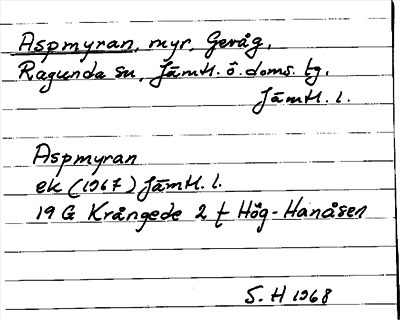 Aspmyran, myr, Gevåg,
Ragunda sn, Jämtl. ö. doms. tg,
Jämtl. l.
Aspmyran
ek (1967) Jämtl. l.
19 G Krångede 2 f Hög-Hanåsen
S. H 1968